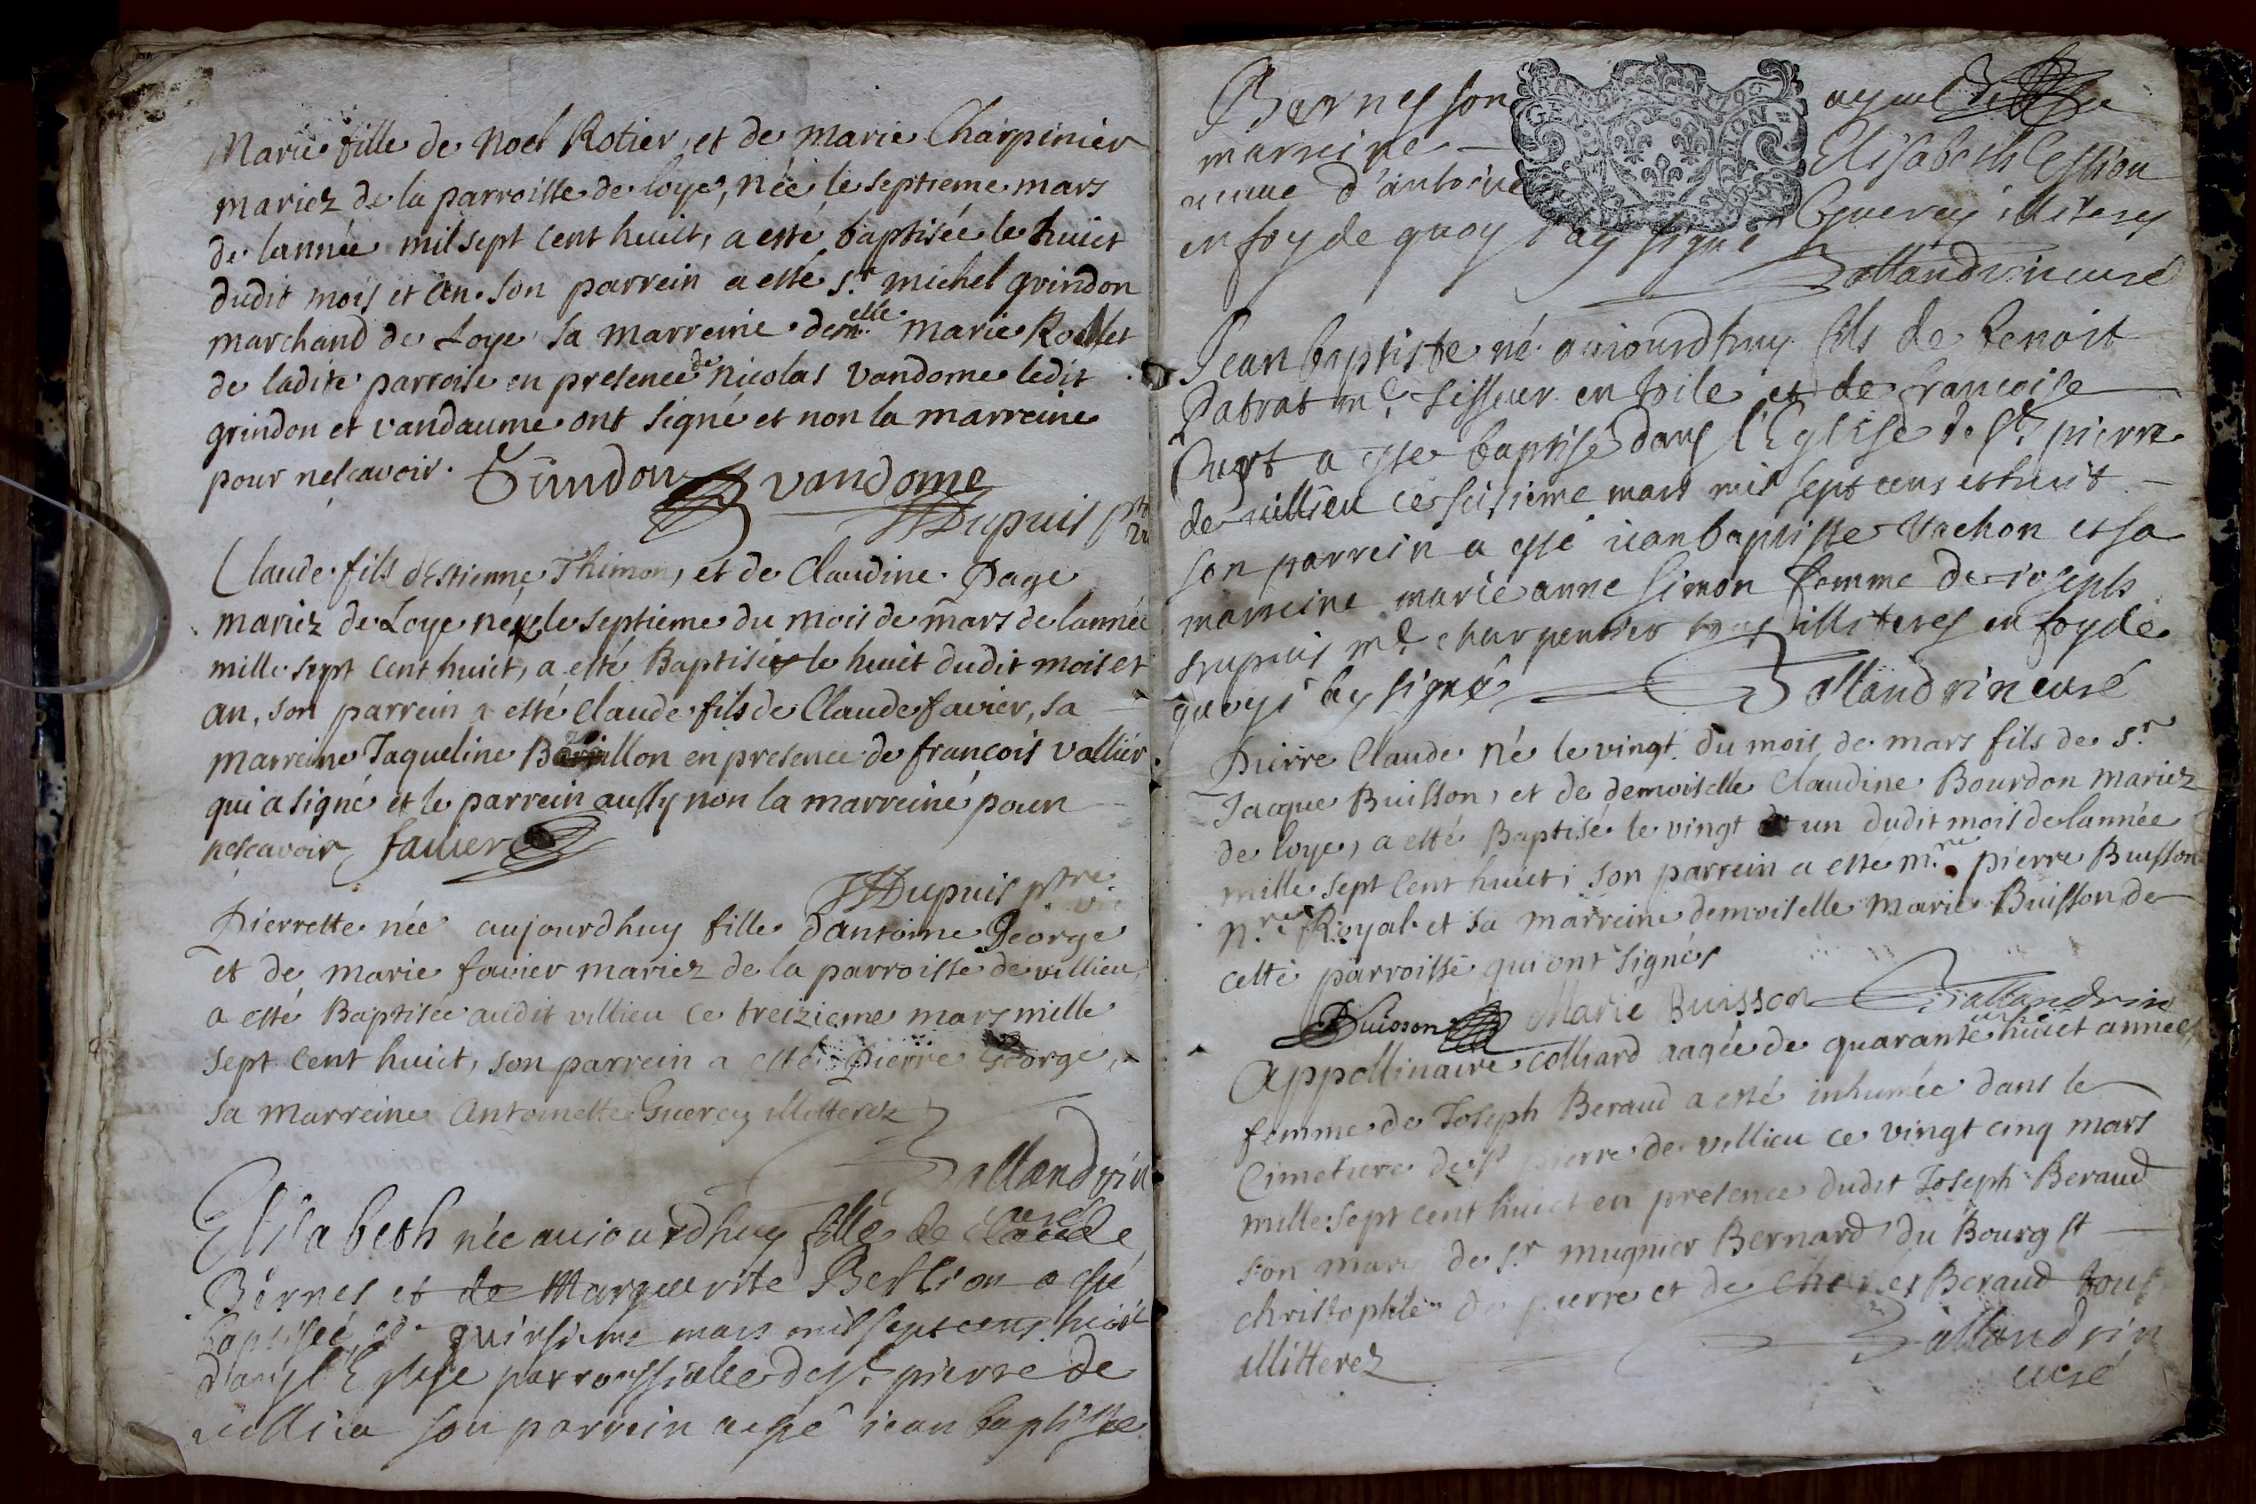 Marie fille de Noel Rotier, et de Marie Charpinier
mariez de la parroisse de loye, née le septieme mars
de lannée mil sept cent huict, a esté baptisée le huict
dudit mois et an. son parrein a esté s.r michel grindon
marchand de Loye sa marreine dem.elle marie Rollet
de ladite parroise en presence de nicolas vandome ledit
grindon et vandaume ont signé et non la marreine
pour nescavoir. Grindon vandome
Dupuis ptre
Claude fils d'Estienne Thimon, et de Claudine Page
mariez de Loye né le septieme du mois de mars de lannée
mille sept cent huict, a esté Baptisé le huict dudit mois et
an, son parrein a esté claude fils de Claude favier, sa
marreine Jaqueline en presence de francois vallier
qui a signé et le parrein aussy non la marreine pour
nescavoir favier
Dupuis ptre
Pierrette née aujourdhuy fille dantoine George
et de marie favier mariez de la parroisse de villieu,
a esté Baptisée audit villieu ce treizieme mars mille
sept cent huict, son parrein a esté pierre George,
sa marreine Antoinette Guerey illitterez
Ballandrin
curé
Elisabeth née auiourdhuy fille de claude
Bernes et de Marguerite Bestion a esté
baptisée ce quinsieme mars mil sept cens huit
dans l'Eglise parroissialle de st pierre de
villieu son parrein a esté iean baptiste
Bernes son ayeul
marreine Elisabeth Estion
veuve d'antoine Guerey illiteres
en foy de quoy i'ay signé
Ballandrin curé
Jean baptiste né auiourdhuy fils de benoit
Patrat m.e tisseur en toile et de francoise
Curt a esté baptisé dans l'Eglise de st pierre
de villieu ce seisieme mars mil sept cens et huit
son parrein a esté iean baptiste Vachon et sa
marreine marie anne simon femme de ioseph
dupuis m.e charpentier illiteres en foy de
quoy i'ay signé Ballandrin curé
Pierre Claude né le vingt du mois de mars fils de s.r
Jacque Buisson, et de demoiselle Claudine Bourdon mariez
de loye, a esté Baptisé le vingt et un dudit mois de lannée
mille sept cent huict, son parrein a esté m.re pierre Buisson
n.re Royal et sa marreine demoiselle Marie Buisson de
cette parroisse qui ont signés
Buisson Marie Buisson Ballandrin
curé
Appollinaire colliard aagée de quarante huict années
femme de Joseph Beraud a esté inhumée dans le
Cimetiere de st pierre de villieu ce vingt cinq mars
mille sept cent huict en presence dudit Joseph Beraud
son mary de s.r mugnier Bernard du Bourg st
christophle de pierre et de Beraud tous
illitterez Ballandrin
curé